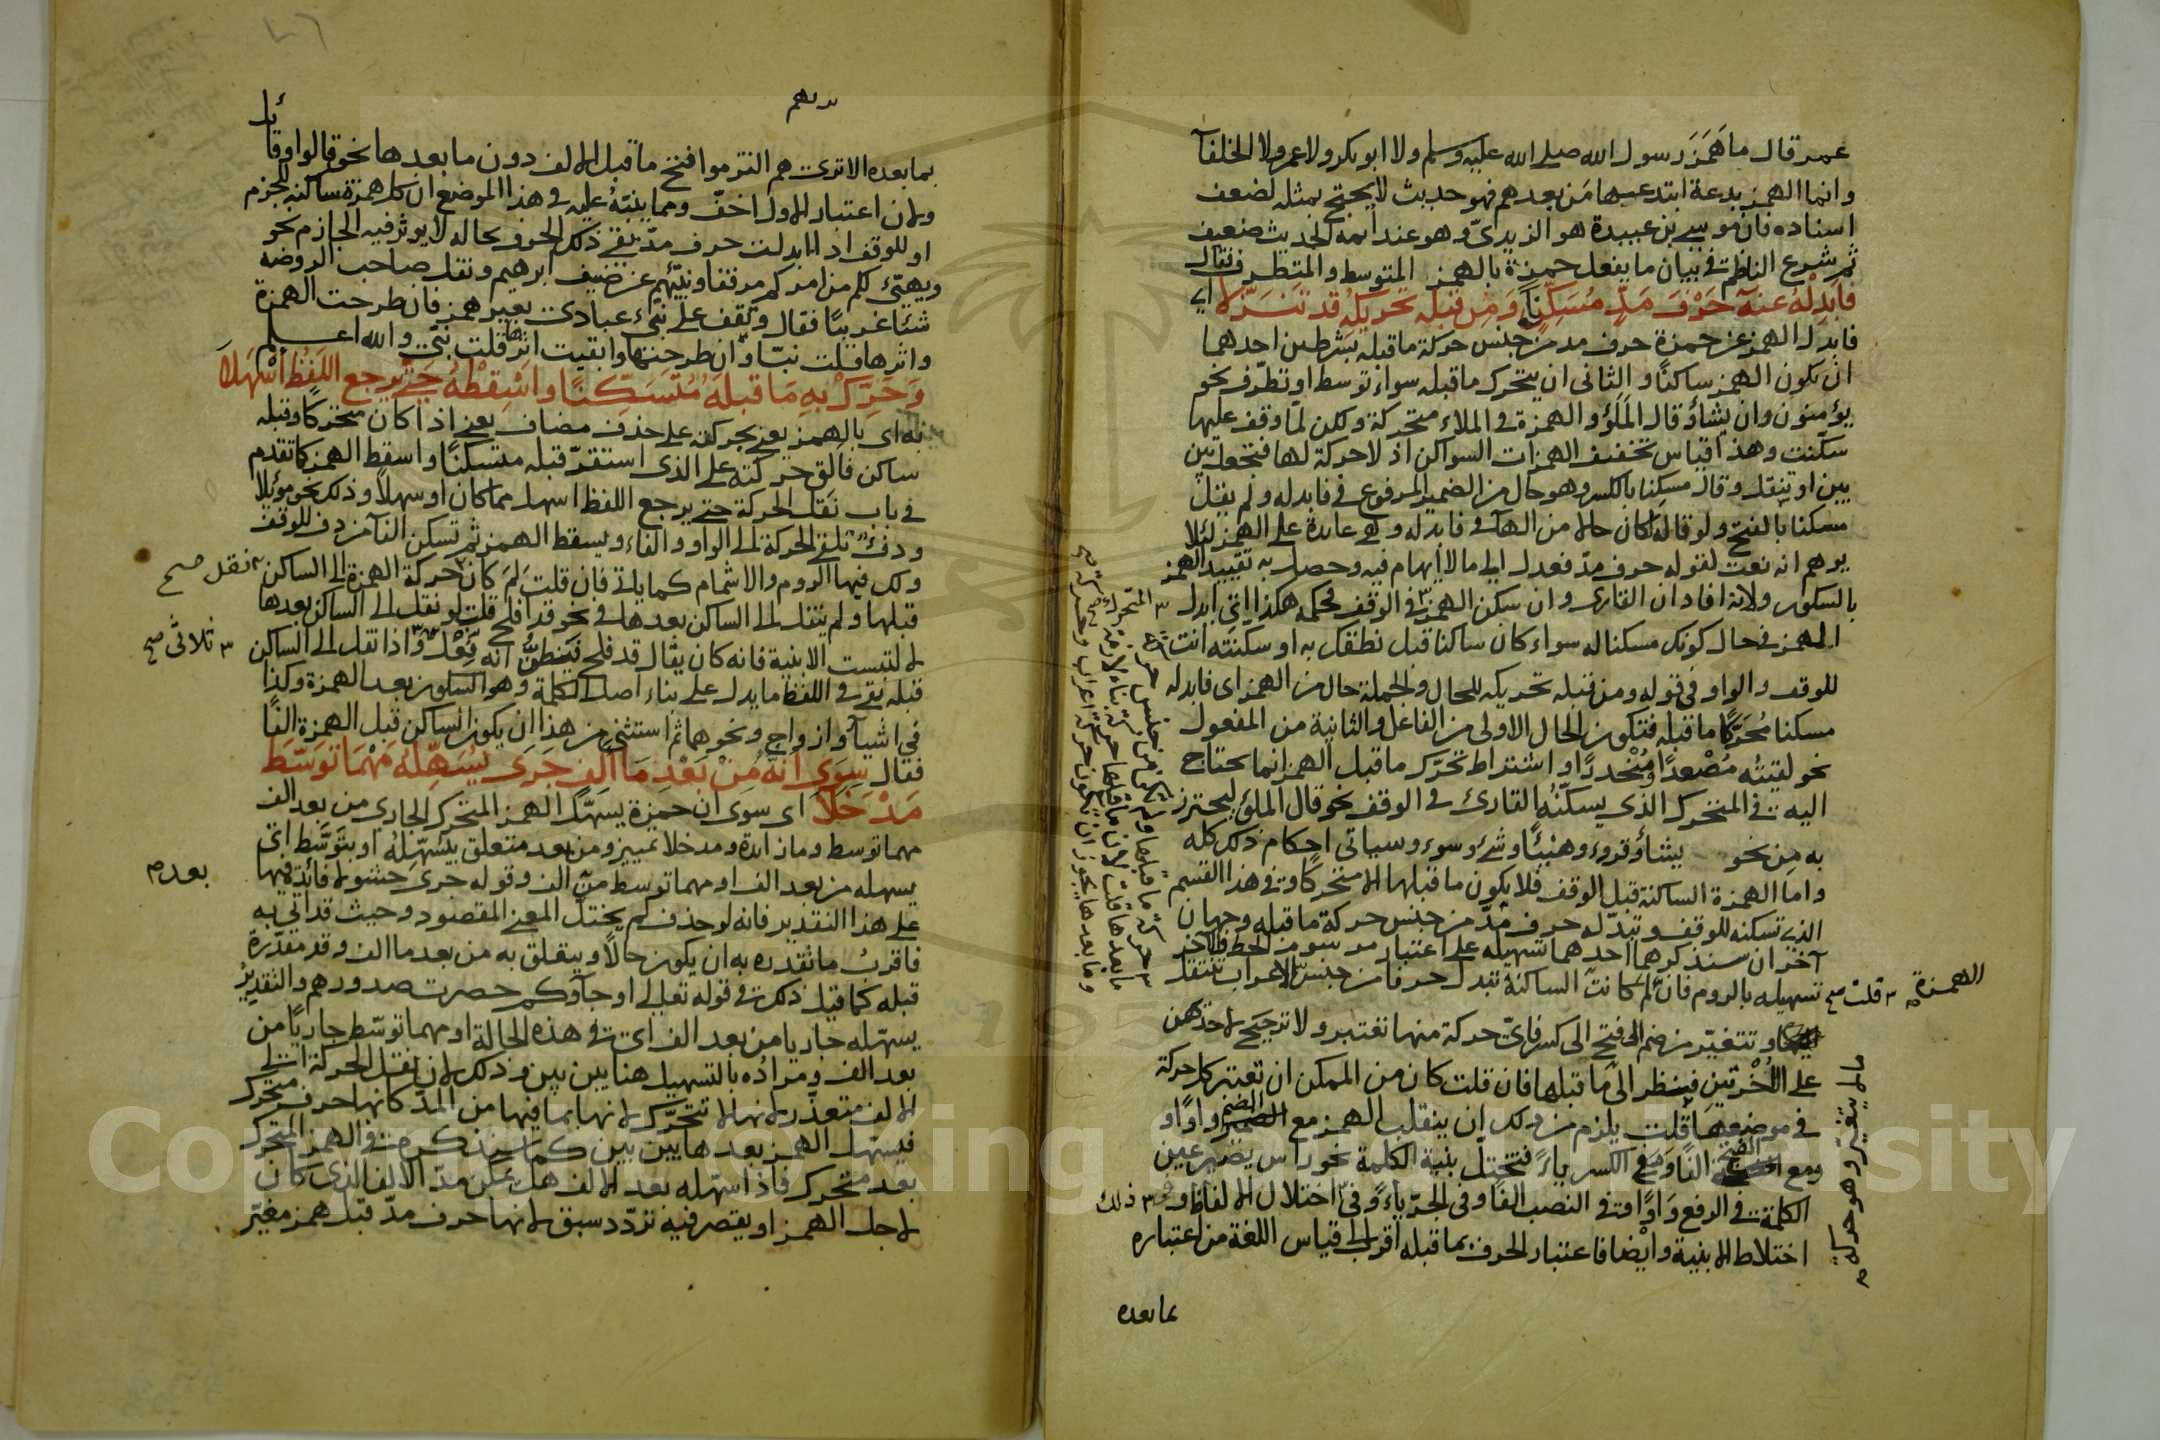 عمر قال ما همَزَ رسول الله صلى الله عليه وسلم ولا ابو بكر ولا عمر ولا الخلفآ
وانما الهمز بدعة ابتدعها مَن بعدهم فهو حديث لا يحتج بمثله لضعف
اسناده فان موسى بن عبيدة هو الزيديّ وهو عند أئمة الحديث ضعيف
ثم شرع الناظم في بيان ما يفعل حمزة بالهمز المتوسط والمتطرف فقال
فأبدِلْه عنهُ حَرْفَ مَدٍّ مُسَكِّناً وَمِن قبله تحريكُه قد تنزَّلا اي
فابدل الهمز عن حمزة حرف مد من جنس حركة ما قبله بشرطين احدهما
ان يكون الهمز ساكنًا والثانى ان يتحرك ما قبله سواء توسط او تطرّف نحو
يؤمنون وان يشأ وقال الملَؤُ والهمزة في الملاء متحركة ولكن لمّا وقف عليها
سكّنت وهذا قياس تخفيف الهمزات السواكن اذ لا حركة لها فتجعل بين
بين او تنقل وقال مسكنا بالكسر وهو حال من الضمير المرفوع في فابدله ولم يقل
مسكنا بالفتح ولو قاله لكان حالا من الهآء في فابدله وهي عايدة على الهمز لئلا
يوهم انه نعت لقوله حرف مدّ فعدل الى ما لا ايهام فيه وحصل به تقييد الهمز
بالسكون ولانه افاد ان القارى وان سكن الهمز في الوقف فحكمه هكذا اي ابدل
الهمز في حال كونك مسكنا له سواء كان ساكنا قبل نطقك به او سكنته انت
للوقف والواو في قوله ومن قبله تحريكه للحال والجملة حال من الهمز اى فابدله
مسكنا مُحَرَّكًا ما قبله فتكون الحال الاولى من الفاعل والثانية من المفعول
نحو لقيتُه مُصْعدًا ومُنْحدرًا واشتراط تحرّك ما قبل الهمز انما يحتاج
اليه في المتحرك الذي يسكّنُه القارئ في الوقف نحو قال الملؤ ليحترز
به مِن نحو يشأ وقروء وهنيئًا وشئ وسوء وسياتى احكام ذلك كله
واما الهمزة الساكنة قبل الوقف فلا يكون ما قبلها الا متحركًا وفي هذا القسم
الذي تسكنه للوقف وتبدّله حرف مدّ من جنس حركة ما قبله وجهان
آخران سنذكرهما احدهما تسهيله على اعتبار مرسوم الخط والآخر
تسهيله بالروم فان لم كانت الساكنة تبدل حرفا من جنس
وتتغيّر من ضم الى فتح الى كسر فاىّ حركة منها تعتبر ولا ترجيح لاحدهن
على الأخرتين فينظر الى ما قبلها فان قلت كان من الممكن ان تعتبر كل حركة
في موضعها قلت يلزم من ذلك ان ينقلب الهمز مع الضم واوًا و
ومع الفتح الفًا ومع الكسر ياءً فتختلّ بنية الكلمة نحو راس يصير عين
الكلمة في الرفع وَاوًا وفي النصب الفًا وفى الجرّ ياءً وفى اختلال الالفاظ و
اختلاط الابنية وايضًا فاعتبار الحرف بما قبله اقرب الى قياس اللغة من اعتباره
بما بعده
الهمزة
قلت صح
ما لا يتغير وهو حركة
بما بعده الا ترى هم التزموا فتح ما قبل الالف دون ما بعدها نحو قالوا وقائل
ولان اعتبار الاول اخفّ ومما ينبّهُ عليه في هذا الموضع ان كل همزة ساكنه للجزم
او للوقف اذا ابدلت حرف مدّ بقي ذلك الحرف بحاله لا يوثر فيه الجازم نحو
ويهيّئ لكم من امركم مرفقا ونبّئهم عن ضيف ابرهيم ونقل صاحب الروضة
شيئا غريبًا فقال وتقف على نبّئ عبادى بغير همز فان طرحت الهمزة
واثرها قلت نبّ وان طرحتها وابقيت اثرها قلت نبّى والله اعلم
وَحَرِّكْ بِهِ مَا قبلَهُ مُتَسَكِّنًا وَاسْقِطْهُ حَتَّى يرجع اللفْظُ أسْهَلاَ
به اى بالهمز يعنى بحركته على حذف مضاف يعنى اذا كان متحركًا وقبله
ساكن فالق حركته على الذى استقرّ قبله متسكنًا واسقط الهمز كما تقدم
في باب نقل الحركة حتى يرجع اللفظ اسهل مما كان او سهلاً وذلك نحو موئلا
ودفءٌ تلقى الحركة الى الواو والفاء ويسقط الهمز ثم تسكن الفآ من دف للوقف
ولك فيها الروم والاشمام كما ياتى فان قلت لِمَ كان حركة الهمزة الى الساكن
قبلها ولم ينقل الى الساكن بعدها في نحو قد افلح قلت لو نقل الى الساكن بعدها
لالتبست الابنية فانه كان يقال قد فلح فيُظنُّ انه فِعْل واذا نقل الى الساكن
قبله بقى في اللفظ ما يدل على بناء اصل الكلمة وهو السكون بعد الهمزة وكذا
في اشيآ وازواج ونحوهما ثم استثنى من هذا ان يكون الساكن قبل الهمزة الفًا
فقال سِوَى أنَّهُ مِنْ بَعْدِ مَا ألِفٍ جَرَى يُسَهِّلُهُ مَهْمَا تَوَسَّطَ
مَدْخَلاَ اى سوى ان حمزة يسهّل الهمز المتحرك الجارى من بعد الف
مهما توسط وما زائدة ومدخلا تمييز ومن بعد متعلق بيُسَهِّلهُ او بتَوَسَّط اى
يسهله من بعد الف او مهما توسط من الف وقوله جرى حشو لا فائدة فيها
على هذا التقدير فانه لو حذف لم يختلّ المعنى المقصود وحيث قد اتي به
فاقربُ ما تقدره به ان يكون حالًا ويتعلق به من بعد ما الف وقد مقدّرة
قبله كما قيل ذلك في قوله تعالى او جآؤكم حصرت صدورهم والتقدير
يسهّله جاريا من بعد الف اى في هذه الحالة او مهما توسّط جاريًا من
بعد الف ومرادُه بالتسهيل هنا بين بين وذلك لان نقل الحركة الى
الالف متعذّر لانها لا تتحرّك لانها بما فيها من المدّ كانها حرف متحرك
فيسهّل الهمز بعدها بين بين كما سنذكره في الهمز المتحرك
بعد متحرك فاذا سهّله بعد الالف هل تمكّن مدّ الالف الذى كان
لاجل الهمز او يقصر فيه تردّد سبق لانها حرف مدّ قبل همز مغيّر
نقل صح
ثلاثى صح
بعد